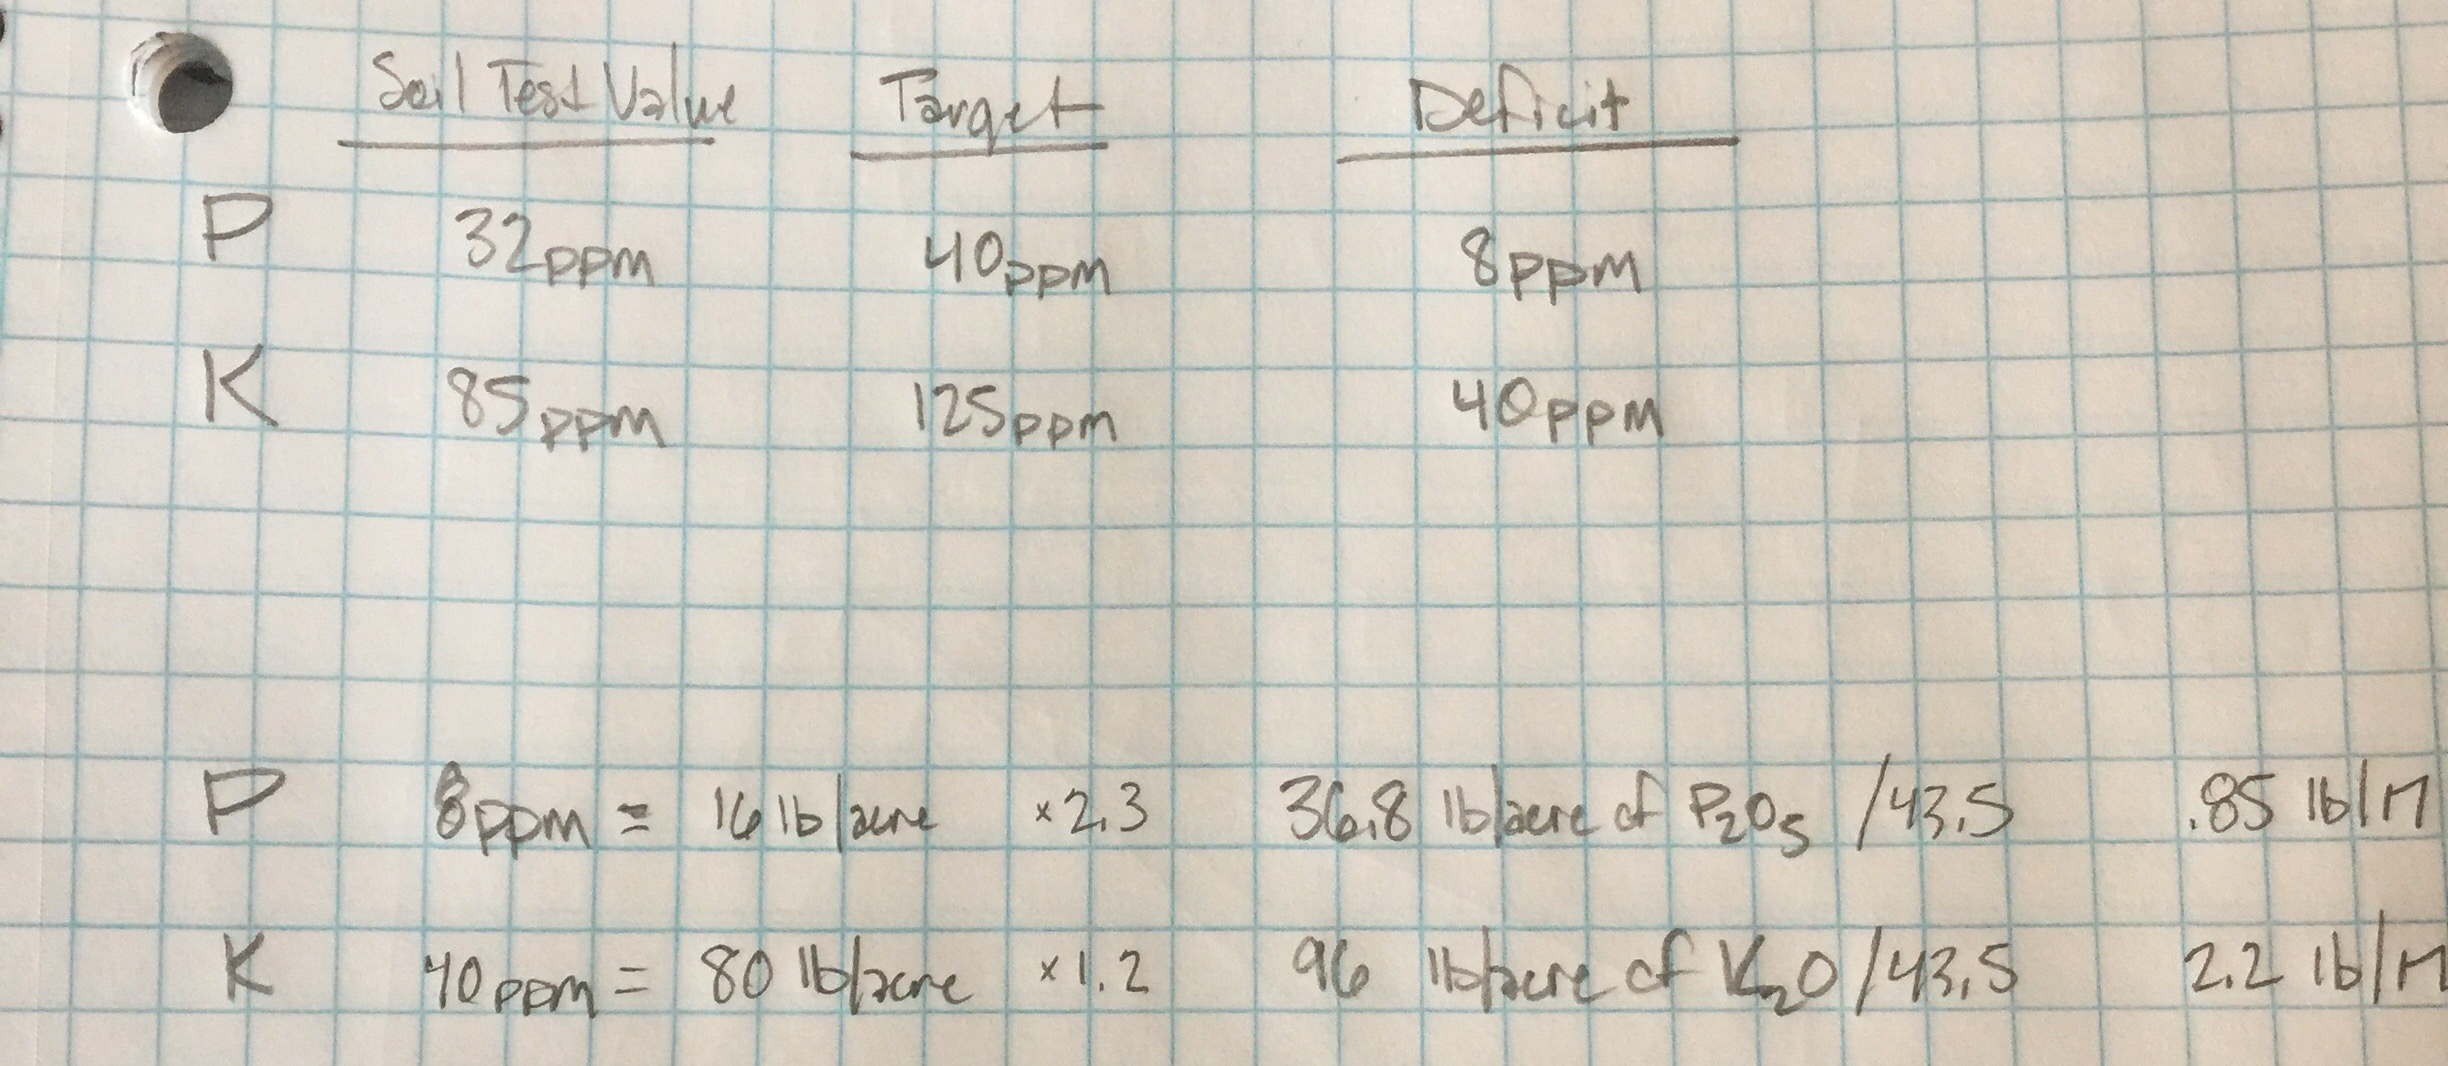 Soil Test Value Target Deficit
P 32ppm 40ppm 8ppm
K 85ppm 125ppm 40ppm
P 8ppm = 16 lb/acre ×2.3 36.8 lb/acre of P₂O₅ /43.5 .85 lb/M
K 40ppm = 80 lb/acre ×1.2 96 lb/acre of K₂O /43.5 2.2 lb/M